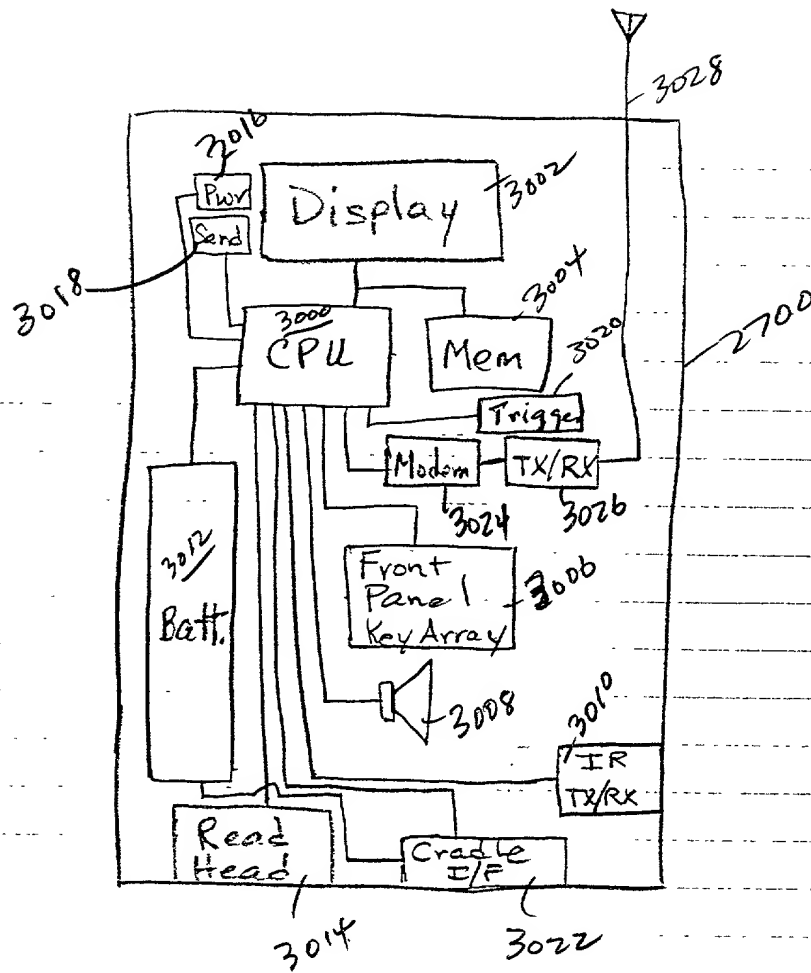 3028
3016
Pwr
Display
3002
Send
3018
3004
3000
CPU
Mem
3020
2700
Trigger
Modem
TX/RX
3024
3026
3012
Batt.
Front
Panel
Key Array
3006
3008
3010
IR
TX/RX
Read
Head
Cradle
I/F
3014
3022